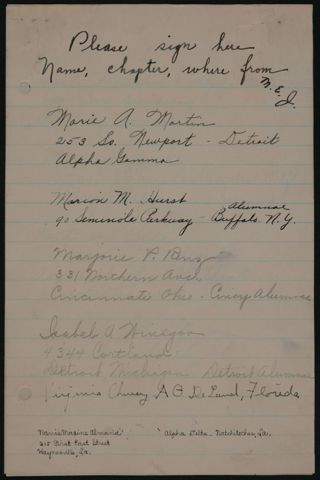 Please sign here
Name, chapter, where from
M. E. J.
Marie A. Martin
253 So. Newport - Detroit
Alpha Gamma
Marion M. Hurst
90 Seminole Parkway - Buffalo N.Y. Alumnae
Marjorie P.
331 Northern Ave
Cincinnati Ohio - Cincy Alumnae
Isabel A Winegar
4344 Cortland
Detroit Michigan Detroit Alumnae
Virginia A O DeLand, Florida
Alpha Delta - Natchitoches, La.
215 First East Street